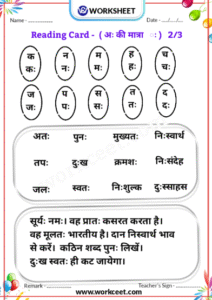 WORKSHEET
Name - Date - .../.../...
Reading Card - ( अः की मात्रा ः ) 2/3
क न म ह च
कः नः मः हः चः
ज प स त द
जः पः सः तः दः
अतः पुनः मुख्यतः निःस्वार्थ
तपः दुःख क्रमशः निःसंदेह
जलः स्वतः निःशुल्क दुःस्साहस
सूर्यः नमः। वह प्रातः कसरत करता है।
वह मूलतः भारतीय है। दान निस्वार्थ भाव
से करें। कठिन शब्द पुनः लिखें।
दुःख स्वतः ही कट जायेगा।
Remark - Teacher's Sign -
www.workceet.com